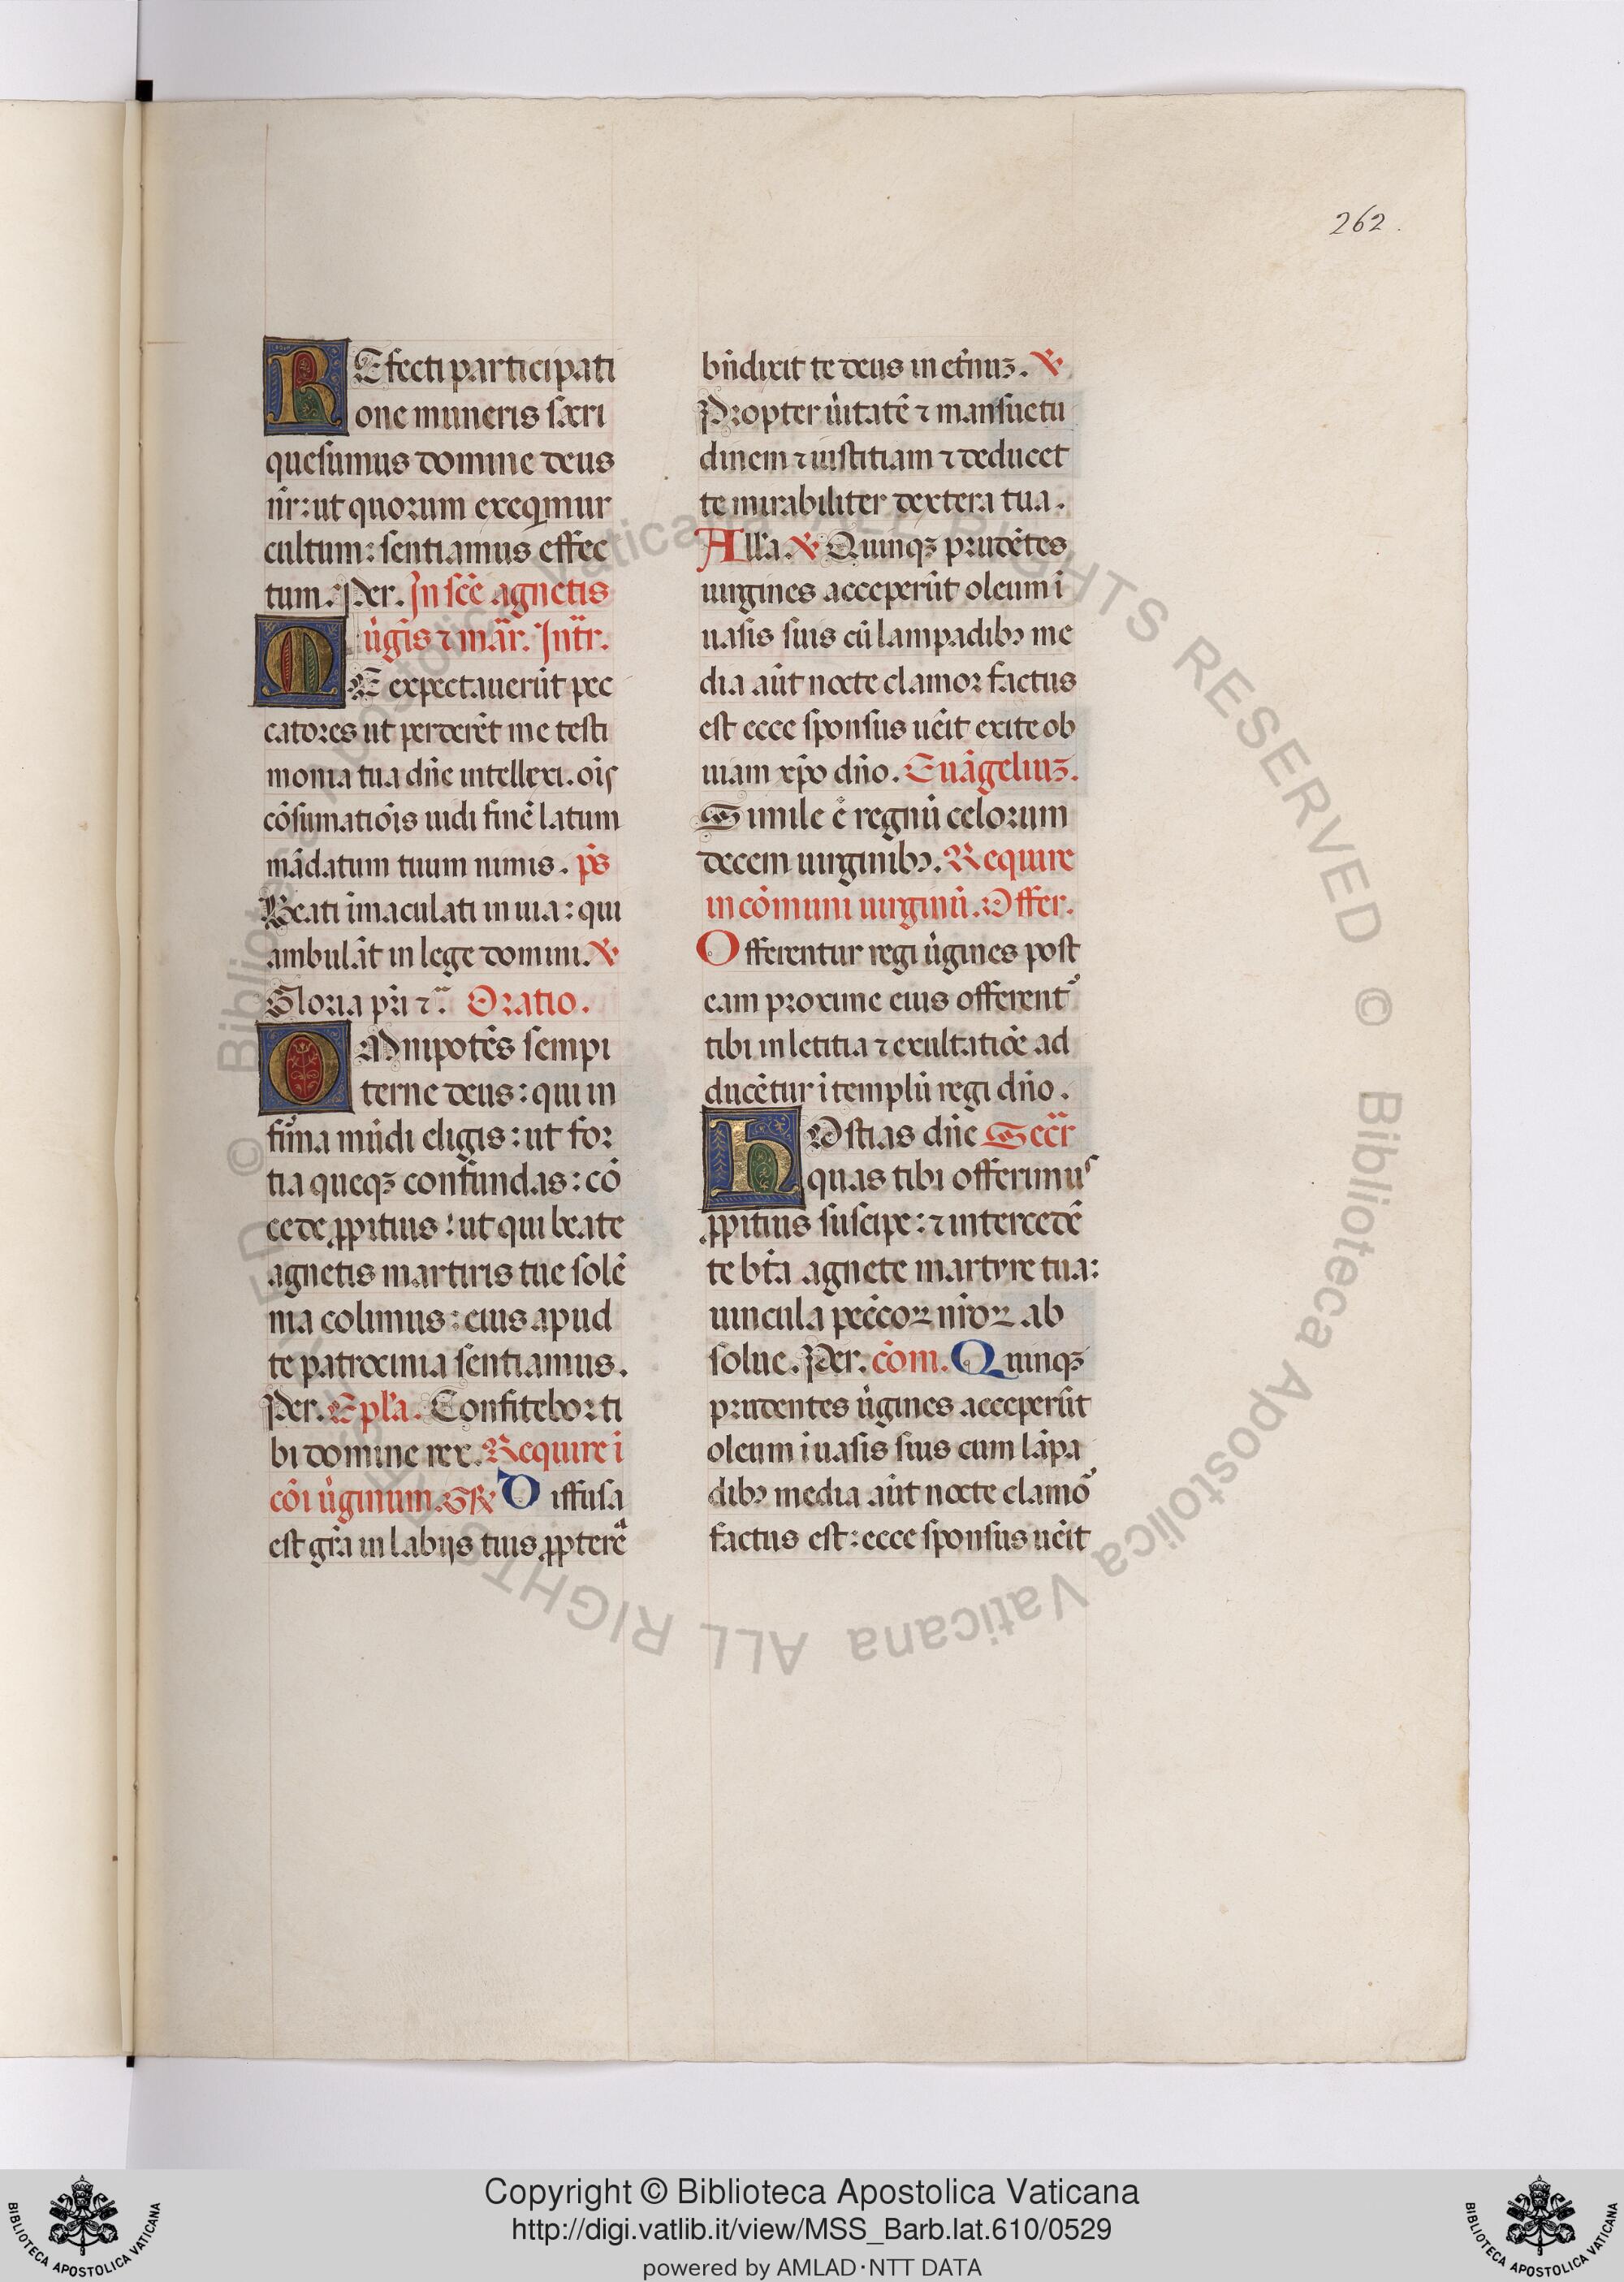 262.
REfecti participati
one muneris sacri
quesumus domine deus
nr̄: ut quorum exeqimur
cultum: sentiamus effec
tum. Per. In scē agnetis
ūgis ⁊ mār. Intr̄.
ME expectauerūt pec
catores ut perderēt me testi
monia tua dn̄e intellexi. oīs
cōsumatiōis uidi finē latum
mādatum tuum nimis. pš
Beati imaculati in uia: qui
ambulāt in lege domini. ℣
Gloria pr̄i ⁊c̄. Oratio.
OMnipotēs sempi
terne deus: qui in
firma mūdi eligis: ut for
tia queqꝫ confundas: cō
cede ꝓpitius: ut qui beate
agnetis martiris tue solē
nia colimus: eius apud
te patrocinia sentiamus.
Per. Epl̄a. Confitebor ti
bi domine rex. Require ī
cōi ūginum. GR̷ Diffusa
est gr̄a in labijs tuis ꝓptereᵃ
bn̄dixit te deus in et̄nuꝫ. ℣
Propter ūitatē ⁊ mansuetu
dinem ⁊ iustitiam ⁊ deducet
te mirabiliter dextera tua.
All̄a. ℣ Quinqꝫ prudētes
uirgines acceperūt oleum ī
uasis suis cū lampadibꝰ me
dia aūt nocte clamor factus
est ecce sponsus uēit exite ob
uiam xp̄o dn̄o. Euāgeliuꝫ.
Simile ē regnū celorum
decem uirginibꝰ. Require
in cōmuni uirginū. Offer.
Offerentur regi ūgines post
eam proxime eius offerent᷑
tibi in letitia ⁊ exultatiōe ad
ducētur ī templū regi dn̄o.
HOstias dn̄e Secr̄
quas tibi offerimus
ꝓpitius suscipe: ⁊ intercedē
te bt̄a agnete martyre tua:
uincula pecc̄oꝝ nr̄oꝝ ab
solue. Per. cōm. Quinqꝫ
prudentes ūgines acceperūt
oleum ī uasis suis cum lāpa
dibꝰ media aūt nocte clamo᷑
factus est: ecce sponsus uēit
© Biblioteca Apostolica Vaticana ALL RIGHTS RESERVED
Copyright © Biblioteca Apostolica Vaticana
http://digi.vatlib.it/view/MSS_Barb.lat.610/0529
powered by AMLAD·NTT DATA
BIBLIOTECA APOSTOLICA VATICANA
BIBLIOTECA APOSTOLICA VATICANA